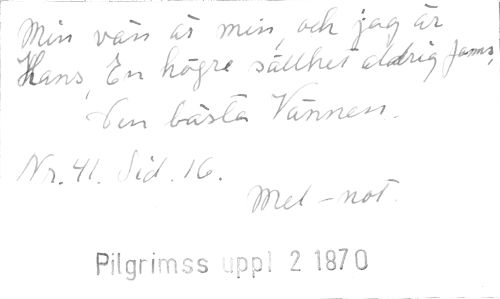 Min vän är min, och jag är
Hans, En högre sällhet aldrig fanns,
Den bästa Vännen.
Nr. 41. Sid. 16.
Mel-not.
Pilgrimss uppl 2 1870